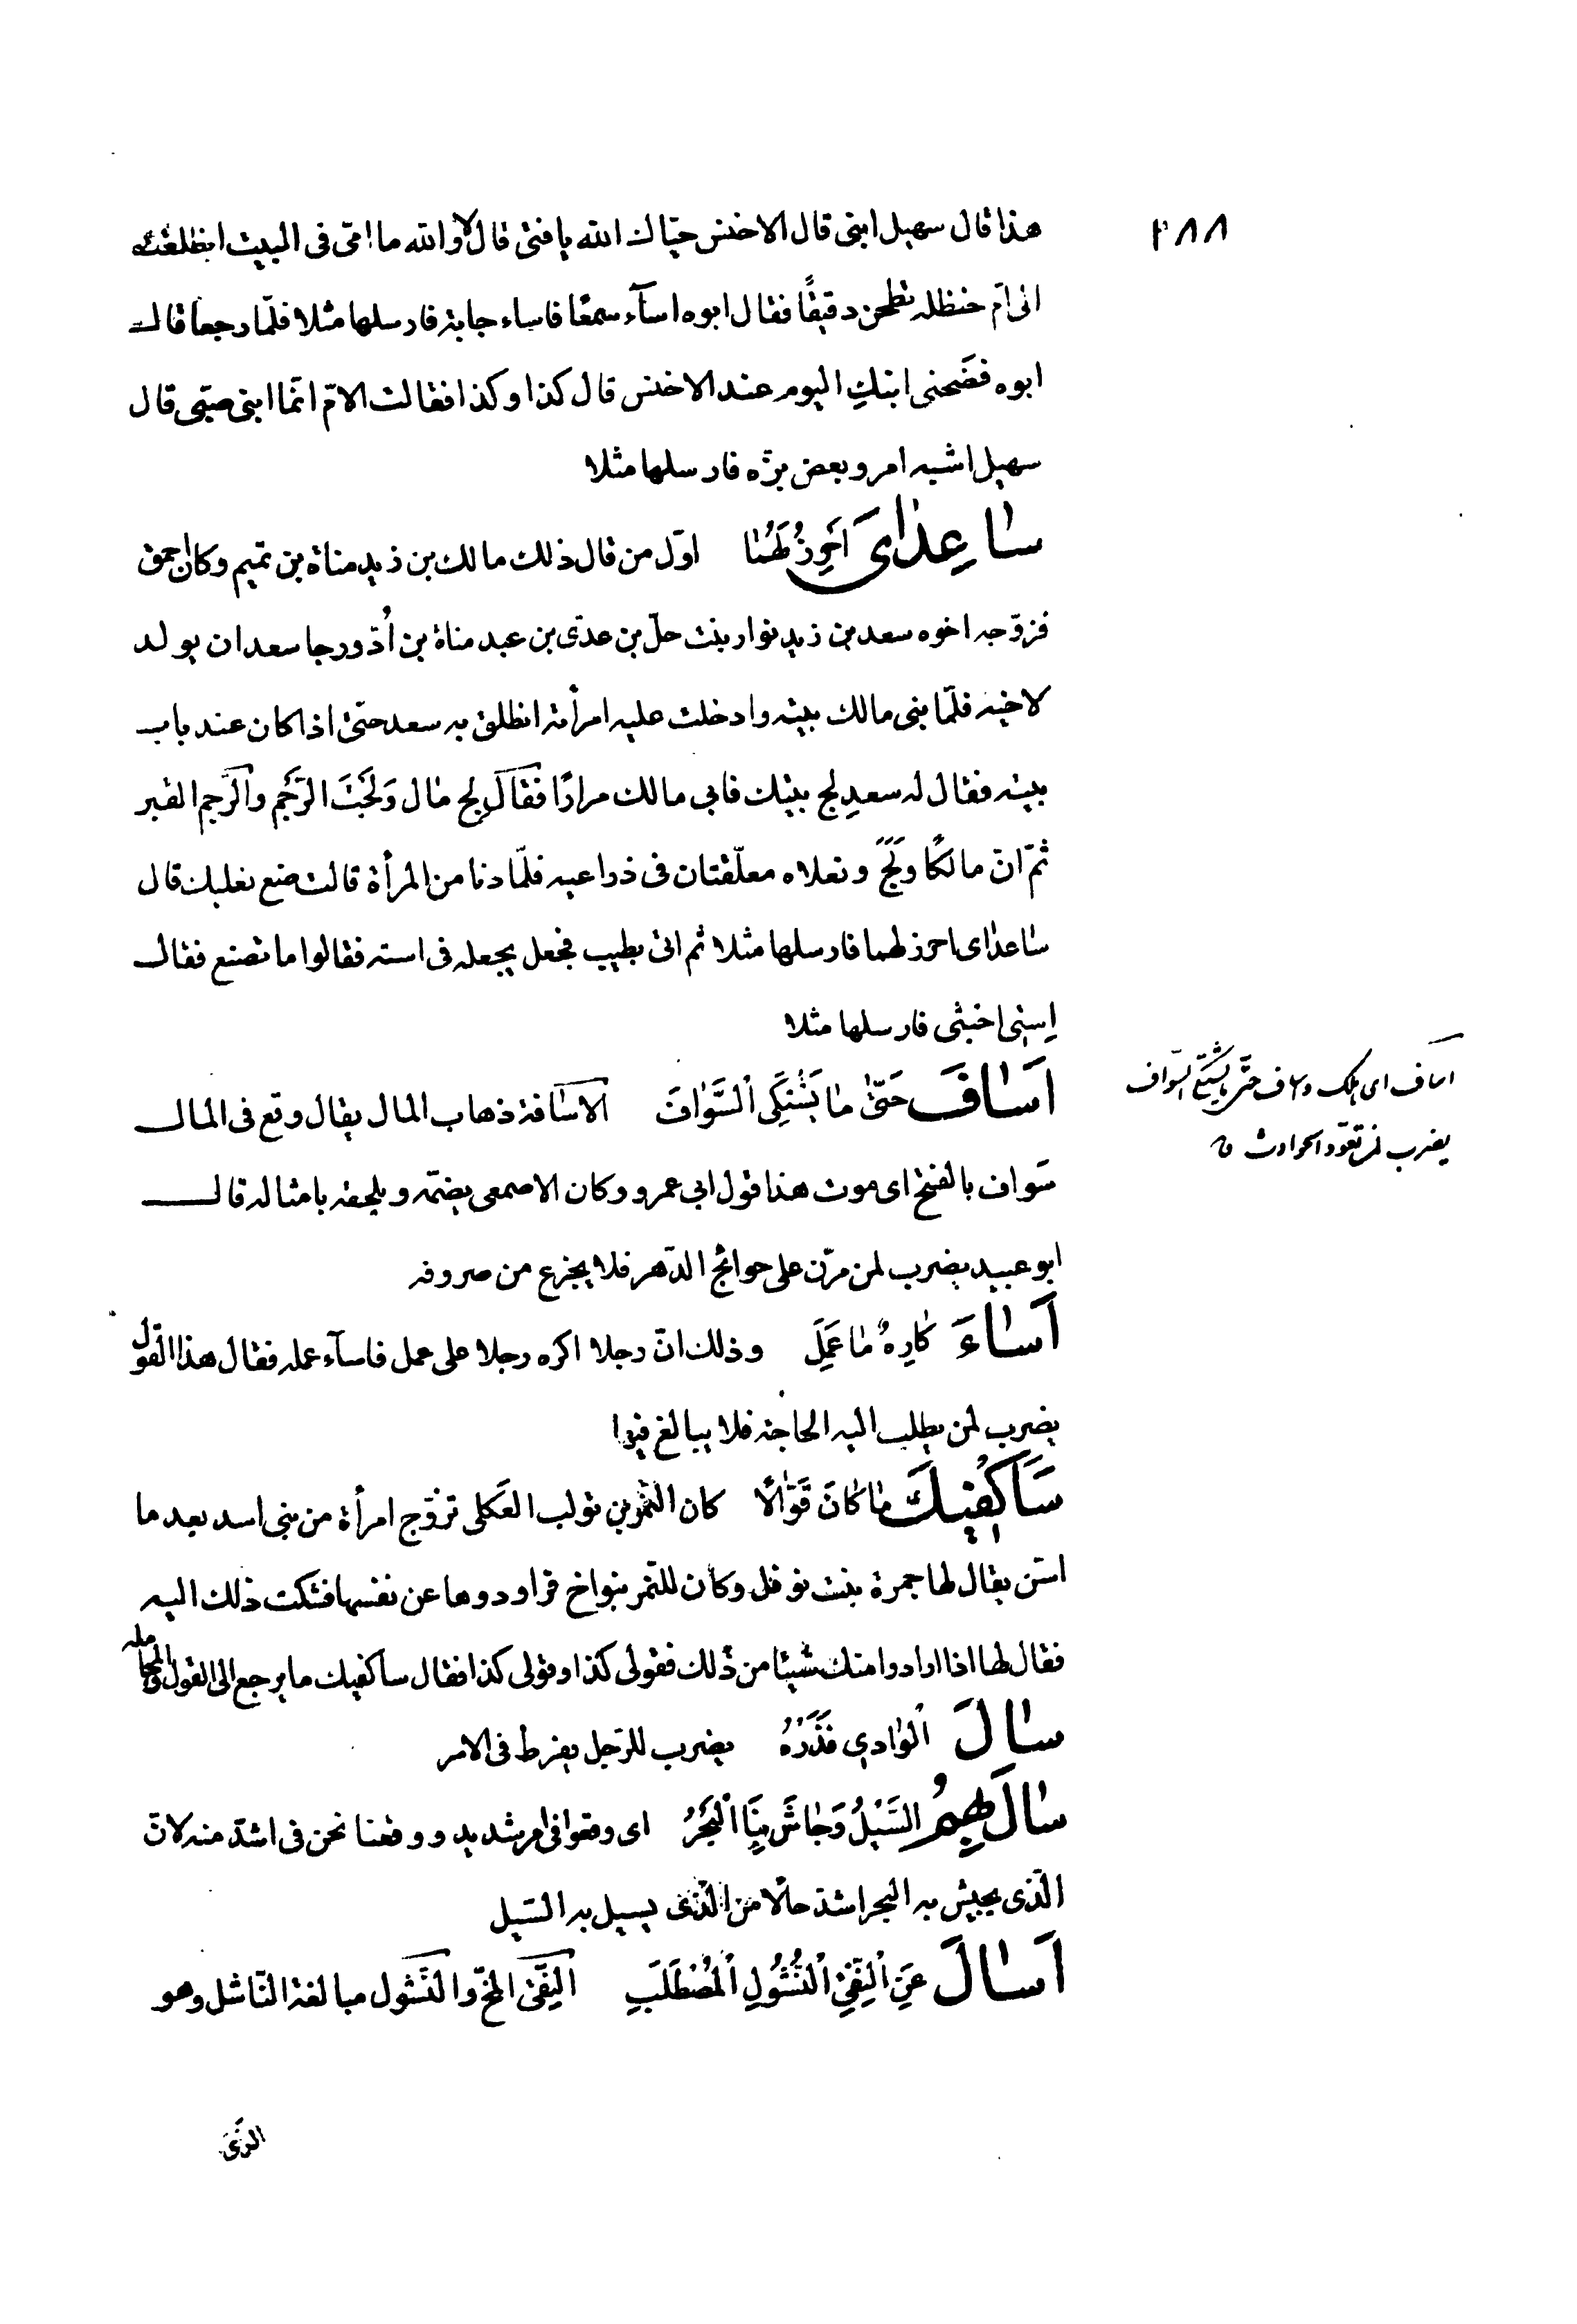 ٢٨٨
هذا قال سهيل ابنى قال الاخنس حيّاك الله يا فتى قال لا والله ما امّى فى البيت انطلقت
الى امّ حنظله تطحن دقيقًا فقال ابوه اسآء سمعًا فاساء جابة فارسلها مثلا فلمّا رجعا قال
ابوه فضَحنى ابنكِ اليوم عند الاخنس قال كذا وكذا فقالت الامّ انّما ابنى صبّى قال
سهيل اشبه امرو بعض برّه فارسلها مثلا
سٰاعِدٰاىَ اَحْرَزُ لَهُمٰا اوّل من قال ذلك مالك بن زيد مناة بن تميم وكان احمق
فزوّجه اخوه سعد بن زيد نوار بنت حلّ بن عدّى بن عبد مناة بن اُدّ ورجا سعد ان يولد
لاخيه فلمّا بنى مالك بيته وادخلت عليه امرأته انطلق به سعد حتّى اذا كان عند باب
بيته فقال له سعد لِج بيتك فابى مالك مرارًا فقال لِج مٰال وَلَجْتَ الرَّجَم والرَّجم القبر
ثمّ انّ مالكًا وَلَجَ ونعلاه معلّقتان فى ذراعيه فلمّا دنا من المرأة قالت ضع نعليك قال
سٰاعدٰاى احرز لهما فارسلها مثلا ثم اتى بطيب فجعل يجعله فى استه فقالوا ما تصنع فقال
اِستى اخبثى فارسلها مثلا
اَسٰافَ حَتّٰى مٰا يَشْتَكِى اْلسَّوٰافَ الاسٰافة ذهاب المال يقال وقع فى المال
سَواف بالفتح اى موت هذا قول ابى عمرو وكان الاصمعى يضمّه ويلحقه بامثاله قال
ابو عبيد يضرب لمن مرّن على حوائج الدّهر فلا يجزع من صروفه
اساف اى هلك وساف حتى ما يشتكى السواف
يضرب لمن تعوّد الحوادث
اَسٰاءَ كٰارِهٌ مٰا عَمِلَ وذلك انّ رجلا اكره رجلا على عمل فاسآء عمله فقال هذا القول
يضرب لمن يطلب اليه الحاجة فلا يبالغ فيها
سَاَكْفِيكَ مٰا كٰانَ قَوّٰالًا كان النّمر بن تولب العَكلى تزوّج امرأة من بنى اسد بعد ما
استن يقال لها جمرة بنت نوفل وكان للنّمر بنو اخ فراودوها عن نفسها فشكت ذلك اليه
فقال لها اذا ارادوا منك شيئا من ذٰلك فقولى كذا وقولى كذا فقال ساكفيك ما يرجع الى القول والمجامله
سٰالَ اْلوٰادِى فَذَرْهُ يضرب للرّجل يفرط فى الامر
سٰالَ بِهِمُ السَّيْلُ وَجٰاشَ بِنَا اْلبَحْرُ اى وقعوا فى امر شديد ووقعنا نحن فى اشدّ منه لانّ
الّذى يجيش به البحر اشدّ حالًا من الّذى يسيل به السّيل
اَسٰالَ عَنِ اْلنِّقْىِ اْلنُّشُولِ اْلمُصْطَلَبِ النِّقى المُخّ والنَّشول مبالغة النّاشل وهو
الّذى